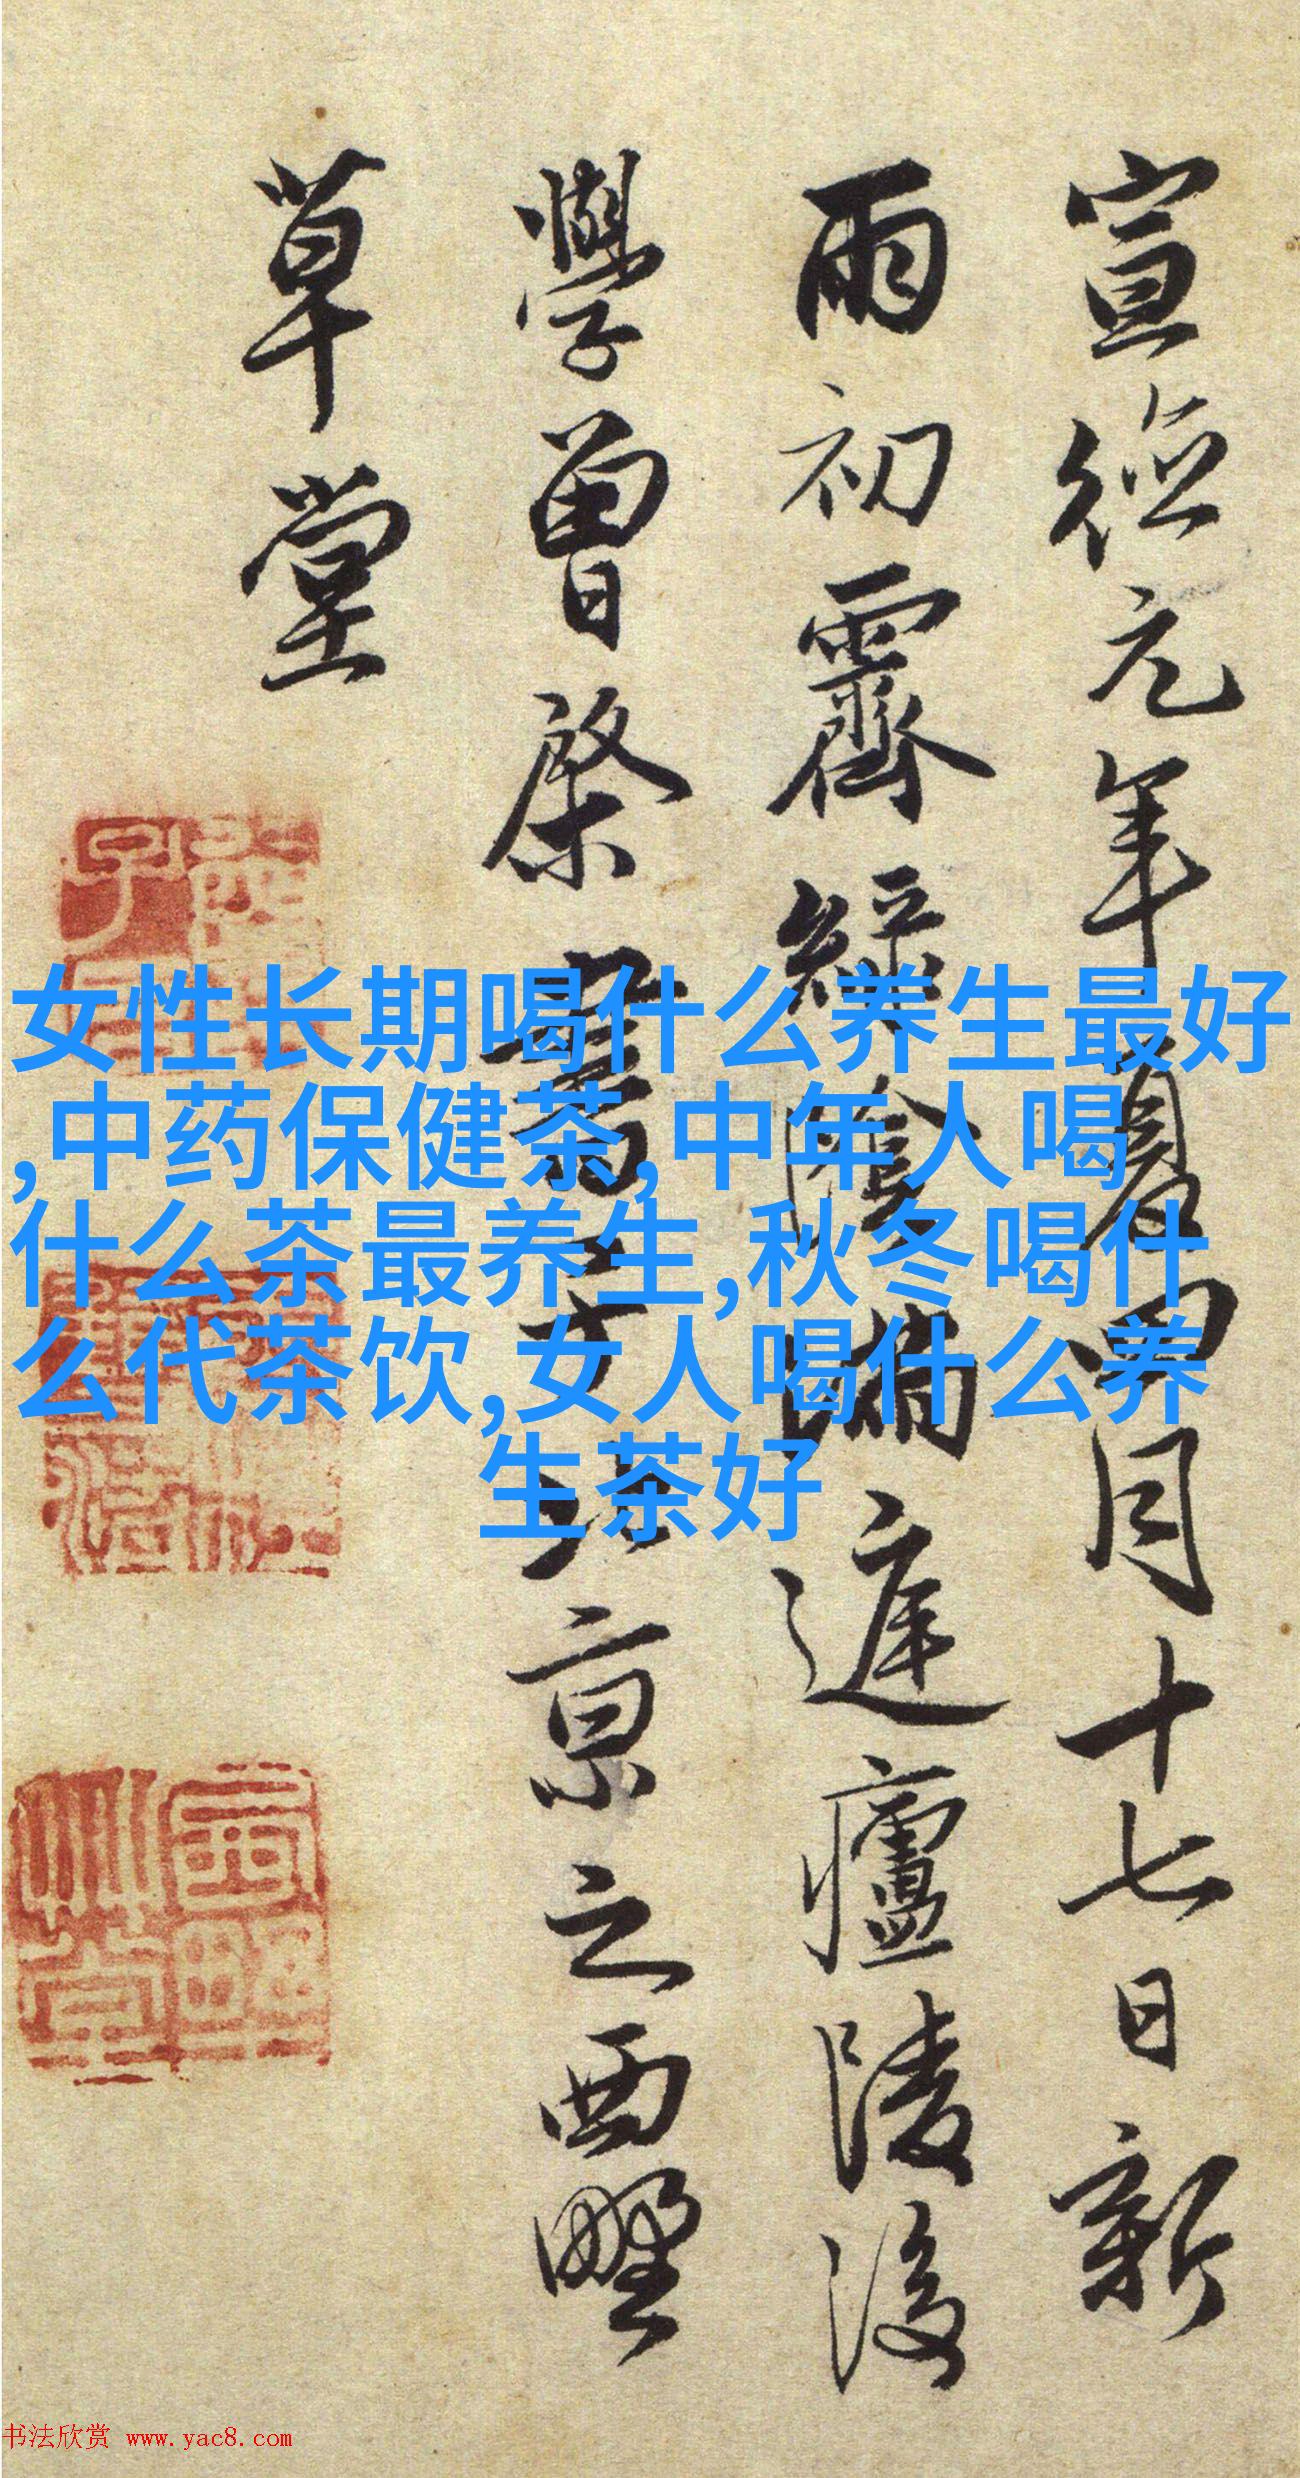 宣德元年夏四月十七日新
雨初霽綠陰滿庭廬陵後
學曾棨書于北京之西墅
草堂
女性长期喝什么养生最好
,中药保健茶,中年人喝
什么茶最养生,秋冬喝什
么代茶饮,女人喝什么养
生茶好
书法欣赏 www.yac8.com